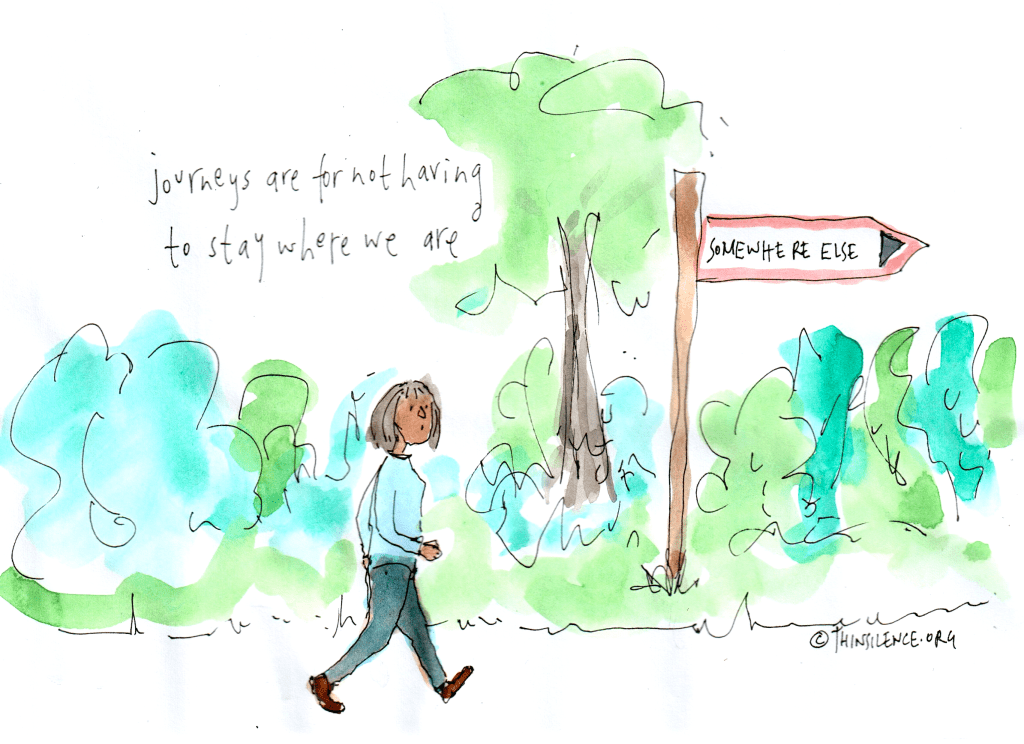 journeys are for not having
to stay where we are
SOMEWHERE ELSE
© THINSILENCE.ORG